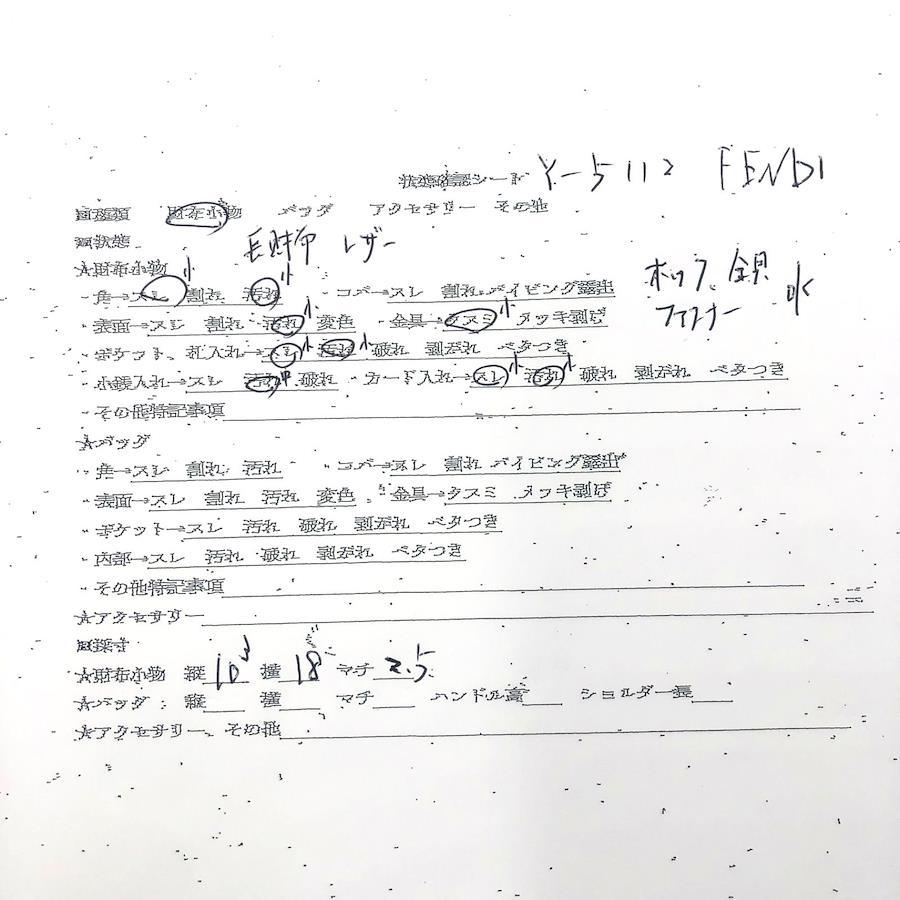 状態確認シート Y-5112 FENDI
■種類 財布小物 バッグ アクセサリー その他
■状態 長財布 レザー
★財布小物
・角→スレ小 割れ 汚れ小 ・コバ→スレ 割れ パイピング露出 ホック、金具
・表面→スレ 割れ 汚れ小 変色 ・金具→クスミ小 メッキ剥げ ファスナー
・ポケット、札入れ→スレ小 汚れ小 破れ 剥がれ ベタつき
・小銭入れ→スレ 汚れ中 破れ ・カード入れ→スレ小 汚れ小 破れ 剥がれ ベタつき
・その他特記事項
★バッグ
・角→スレ 割れ 汚れ ・コバ→スレ 割れ パイピング露出
・表面→スレ 割れ 汚れ 変色 ・金具→クスミ メッキ剥げ
・ポケット→スレ 汚れ 破れ 剥がれ ベタつき
・内部→スレ 汚れ 破れ 剥がれ ベタつき
・その他特記事項
★アクセサリー
■採寸
★財布小物 縦10 横18 マチ2.5
★バッグ:縦 横 マチ ハンドル高 ショルダー長
★アクセサリー、その他